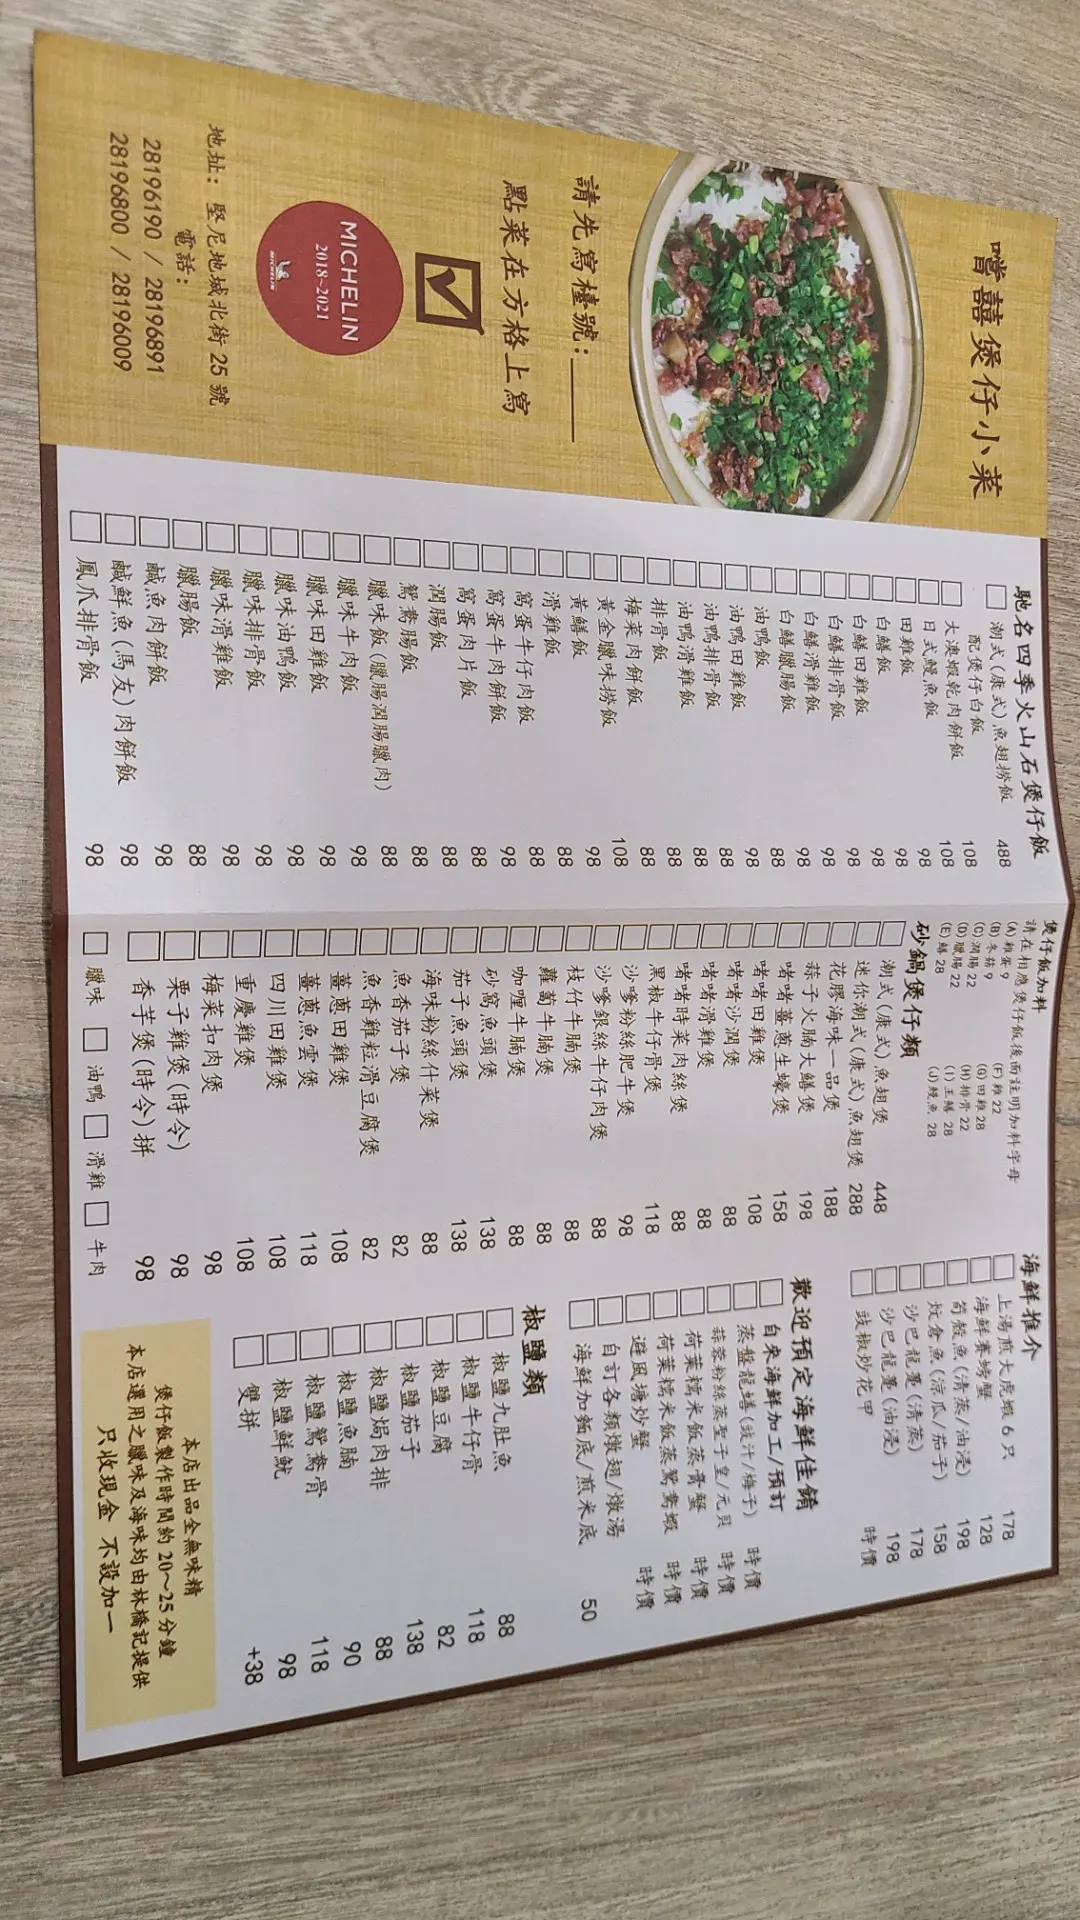 噹囍煲仔小菜
請先寫檯號：
點菜在方格上寫
MICHELIN
2018~2021
MICHELIN
地址：堅尼地城北街 25 號
電話：
28196190 / 28196891
28196800 / 28196009
馳名四季火山石煲仔飯
潮式(康式)魚翅撈飯 488
配煲仔白飯 108
大澳蝦乾肉餅飯 108
日式鰻魚飯 98
田雞飯 98
白鱔飯 98
白鱔田雞飯 98
白鱔排骨飯 98
白鱔滑雞飯 98
白鱔臘腸飯 98
油鴨飯 88
油鴨田雞飯 98
油鴨排骨飯 88
油鴨滑雞飯 88
排骨飯 88
梅菜肉餅飯 88
黃金臘味撈飯 108
黃鱔飯 98
滑雞飯 88
窩蛋牛仔肉飯 88
窩蛋牛肉餅飯 98
窩蛋肉片飯 88
潤腸飯 88
鴛鴦腸飯 88
臘味飯(臘腸潤腸臘肉) 88
臘味牛肉飯 98
臘味田雞飯 98
臘味油鴨飯 98
臘味排骨飯 98
臘味滑雞飯 98
臘腸飯 88
鹹魚肉餅飯 98
鹹鮮魚(馬友)肉餅飯 98
鳳爪排骨飯 98
煲仔飯加料
請在相應煲仔飯後面註明加料字母
(A) 雞蛋 9 (F) 雞 22
(B) 冬菇 9 (G) 田雞 28
(C) 潤腸 22 (H) 排骨 22
(D) 臘腸 22 (I) 王鱔 28
(E) 鱔 28 (J) 鰻魚 28
砂鍋煲仔類
潮式(康式)魚翅煲 448
迷你潮式(康式)魚翅煲 288
花膠海味一品煲 188
蒜子火腩大鱔煲 198
啫啫薑蔥生蠔煲 158
啫啫田雞煲 108
啫啫沙潤煲 88
啫啫滑雞煲 88
啫啫時菜肉絲煲 88
黑椒牛仔骨煲 118
沙爹粉絲肥牛煲 98
沙爹銀絲牛仔肉煲 88
枝竹牛腩煲 88
蘿蔔牛腩煲 88
咖喱牛腩煲 88
砂窩魚頭煲 138
茄子魚頭煲 138
海味粉絲什菜煲 88
魚香茄子煲 82
魚香雞粒滑豆腐煲 82
薑蔥田雞煲 108
薑蔥魚雲煲 118
四川田雞煲 108
重慶雞煲 108
梅菜扣肉煲 98
栗子雞煲(時令) 98
香芋煲(時令)拼 98
臘味 油鴨 滑雞 牛肉
海鮮推介
上湯煎大虎蝦 6 只 178
海鮮賽螃蟹 128
筍殼魚(清蒸/油浸) 198
炆倉魚(涼瓜/茄子) 158
沙巴龍躉(清蒸) 178
沙巴龍躉(油浸) 198
豉椒炒花甲 時價
歡迎預定海鮮佳餚
自來海鮮加工/預訂
蒸盤龍鱔(豉汁/梅子) 時價
蒜蓉粉絲蒸聖子皇/元貝 時價
荷葉糯米飯蒸膏蟹 時價
荷葉糯米飯蒸鴛鴦蝦 時價
避風塘炒蟹 時價
自訂各類燉翅/燉湯
海鮮加麵底/煎米底 50
椒鹽類
椒鹽九肚魚 88
椒鹽牛仔骨 118
椒鹽豆腐 82
椒鹽茄子 138
椒鹽焗肉排 88
椒鹽魚腩 90
椒鹽鴛鴦骨 118
椒鹽鮮魷 98
雙拼 +38
本店出品全無味精
煲仔飯製作時間約 20~25 分鐘
本店選用之臘味及海味均由林橋記提供
只收現金 不設加一